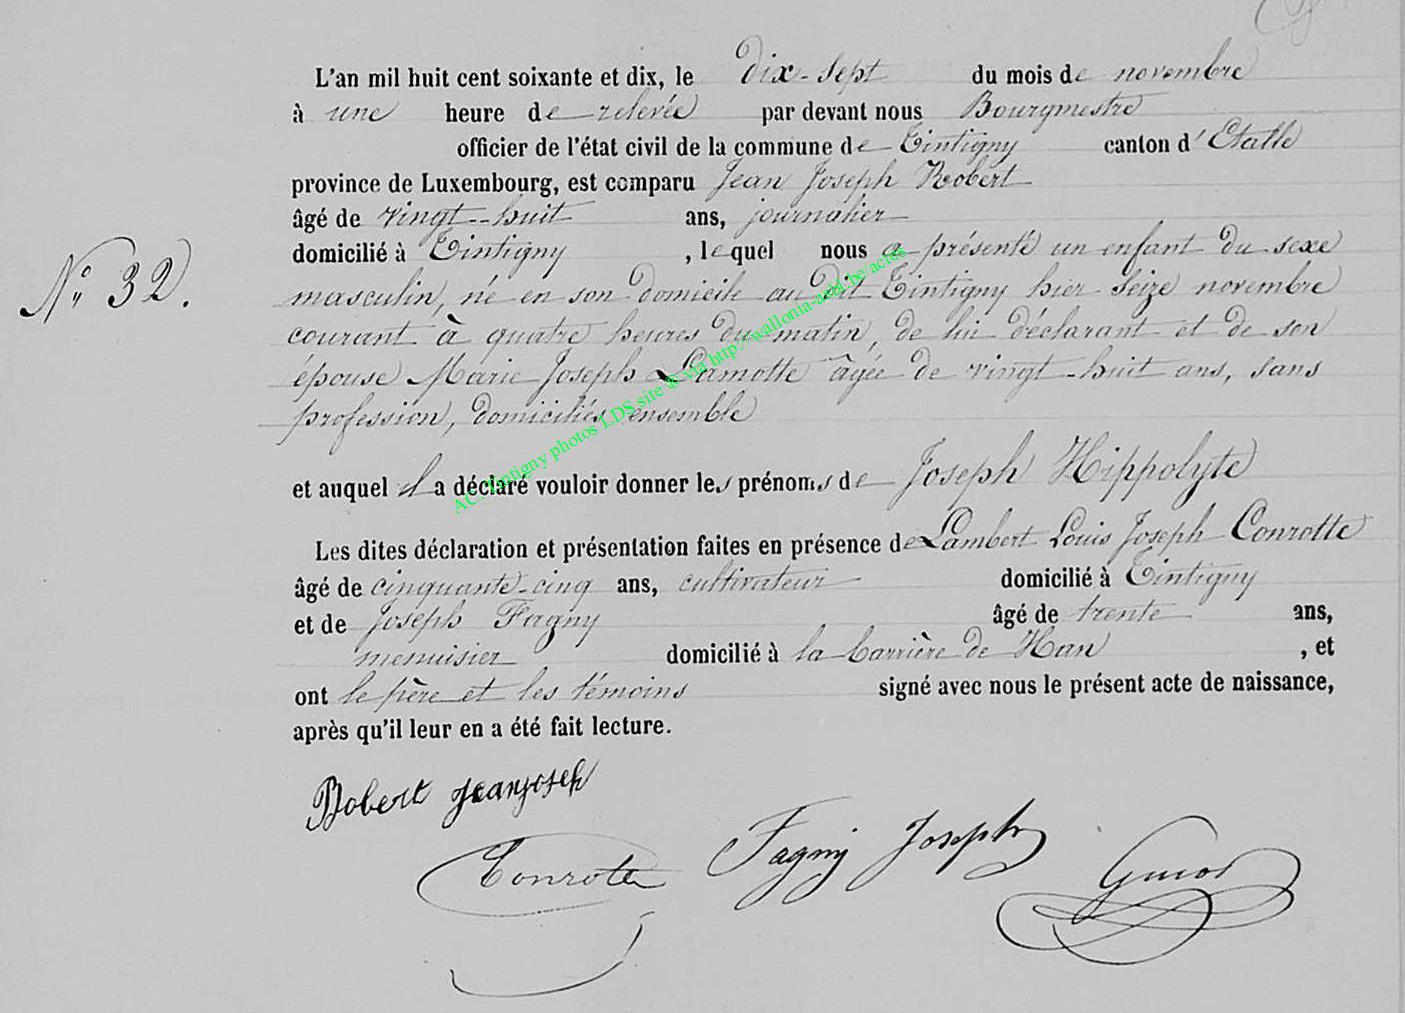 L'an mil huit cent soixante et dix, le dix-sept du mois de novembre
à une heure de relevée par devant nous Bourgmestre
officier de l'état civil de la commune de Tintigny canton d'Etalle
province de Luxembourg, est comparu Jean Joseph Robert
âgé de vingt-huit ans, journalier
domicilié à Tintigny, lequel nous a présenté un enfant du sexe
N° 32.
masculin, né en son domicile au dit Tintigny hier seize novembre
courant à quatre heures du matin, de lui déclarant et de son
épouse Marie Joseph Lamotte âgée de vingt-huit ans, sans
profession, domiciliés ensemble
et auquel il a déclaré vouloir donner les prénoms de Joseph Hippolyte
Les dites déclaration et présentation faites en présence de Lambert Louis Joseph Conrotte
âgé de cinquante-cinq ans, cultivateur domicilié à Tintigny
et de Joseph Fagny âgé de trente ans,
menuisier domicilié à la barrière de Han, et
ont le père et les témoins signé avec nous le présent acte de naissance,
après qu'il leur en a été fait lecture.
Robert jeanjoseph
Fagny Joseph
AC. Tintigny photos LDS site © via http://wallonia-asbl.be/actes